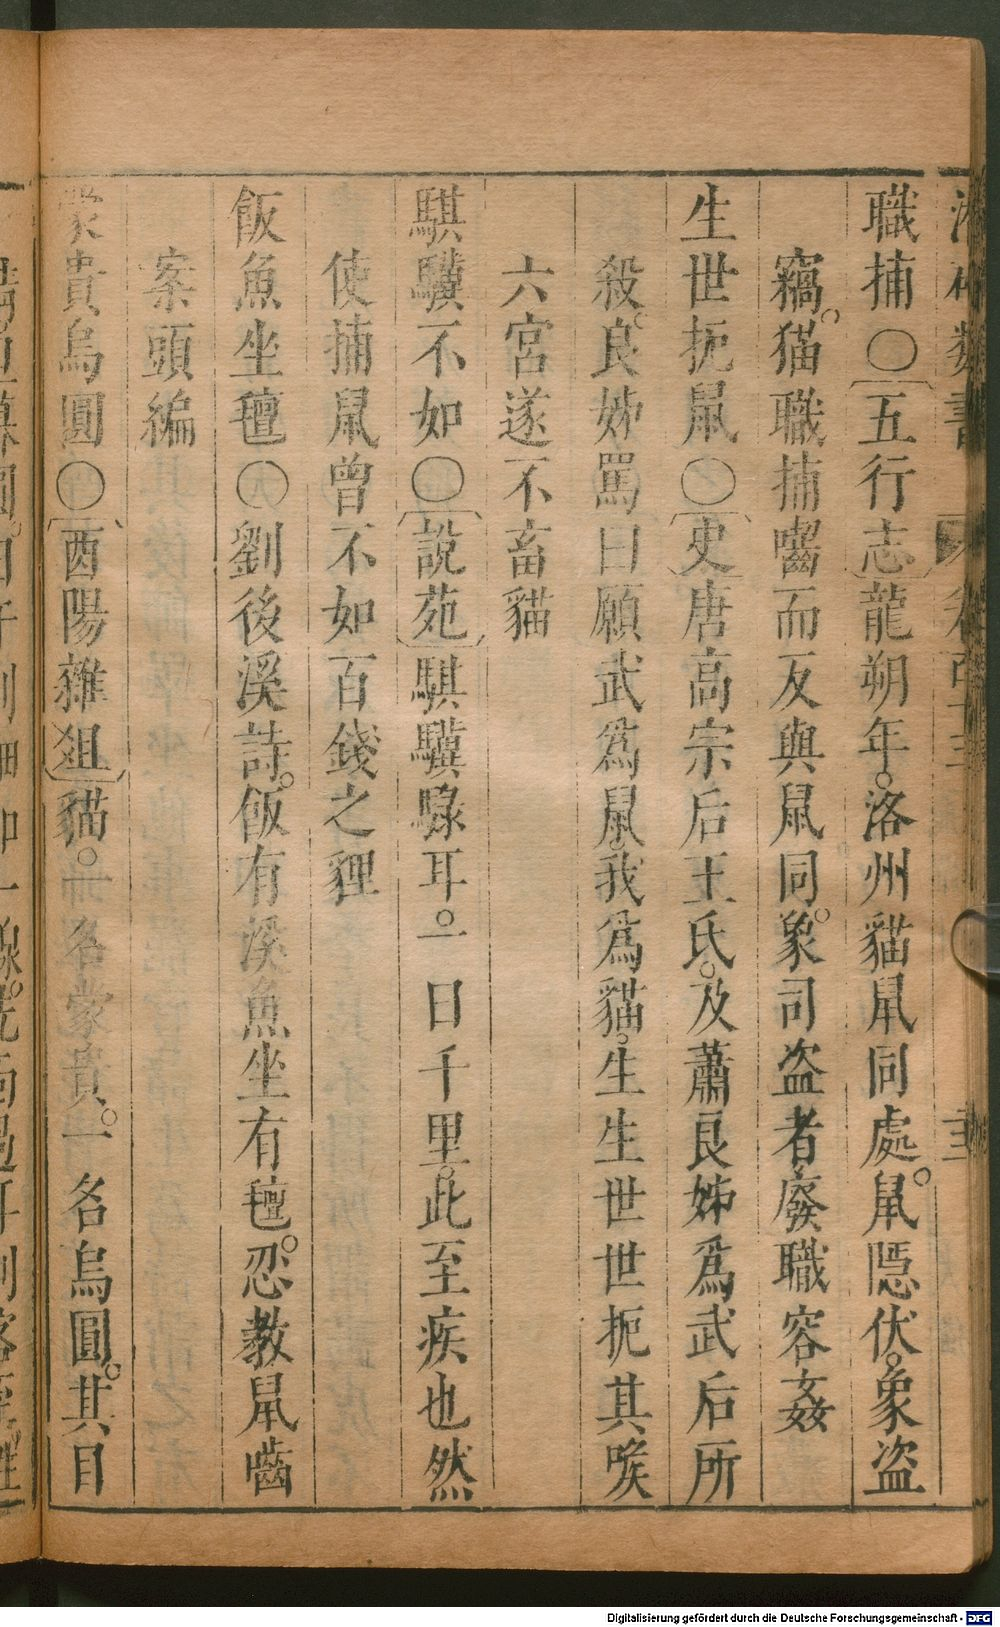 職捕〇五行志龍朔年。洛州貓鼠同處。鼠隱伏。象盜
竊。猫職捕囓而反與鼠同。象司盜者廢職容姦
生世扼鼠〇史唐高宗后王氏。及蕭良娣爲武后所
殺。良娣罵曰願武爲鼠。我爲貓。生生世世扼其喉
六宮遂不畜貓
騏驥不如〇說苑騏驥騄耳。一日千里。此至疾也然
使捕鼠曾不如百錢之狸
飯魚坐氊〇劉後溪詩。飯有溪魚坐有氊。忍教鼠嚙
案頭編
蒙貴烏圓〇酉陽雜俎貓。一名蒙貴。一名烏圓。其目
Digitalisierung gefördert durch die Deutsche Forschungsgemeinschaft - DFG